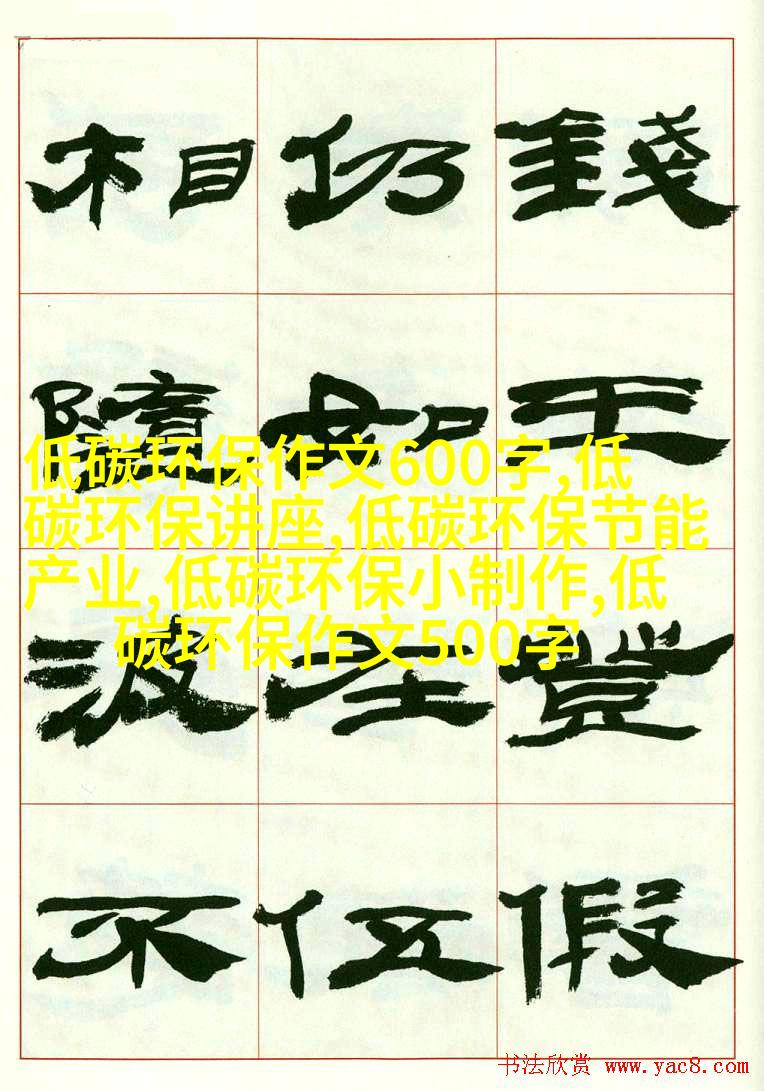 錢王登假
仍如在伍
相隨波不
低碳环保作文600字,低
碳环保讲座,低碳环保节能
产业,低碳环保小制作,低
碳环保作文500字
书法欣赏 www.yac8.com